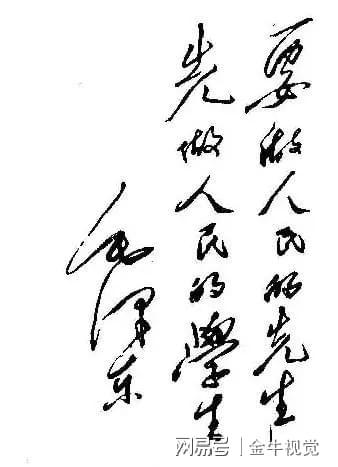 要做人民的先生
先做人民的學生
毛泽东
网易号 | 金牛视觉